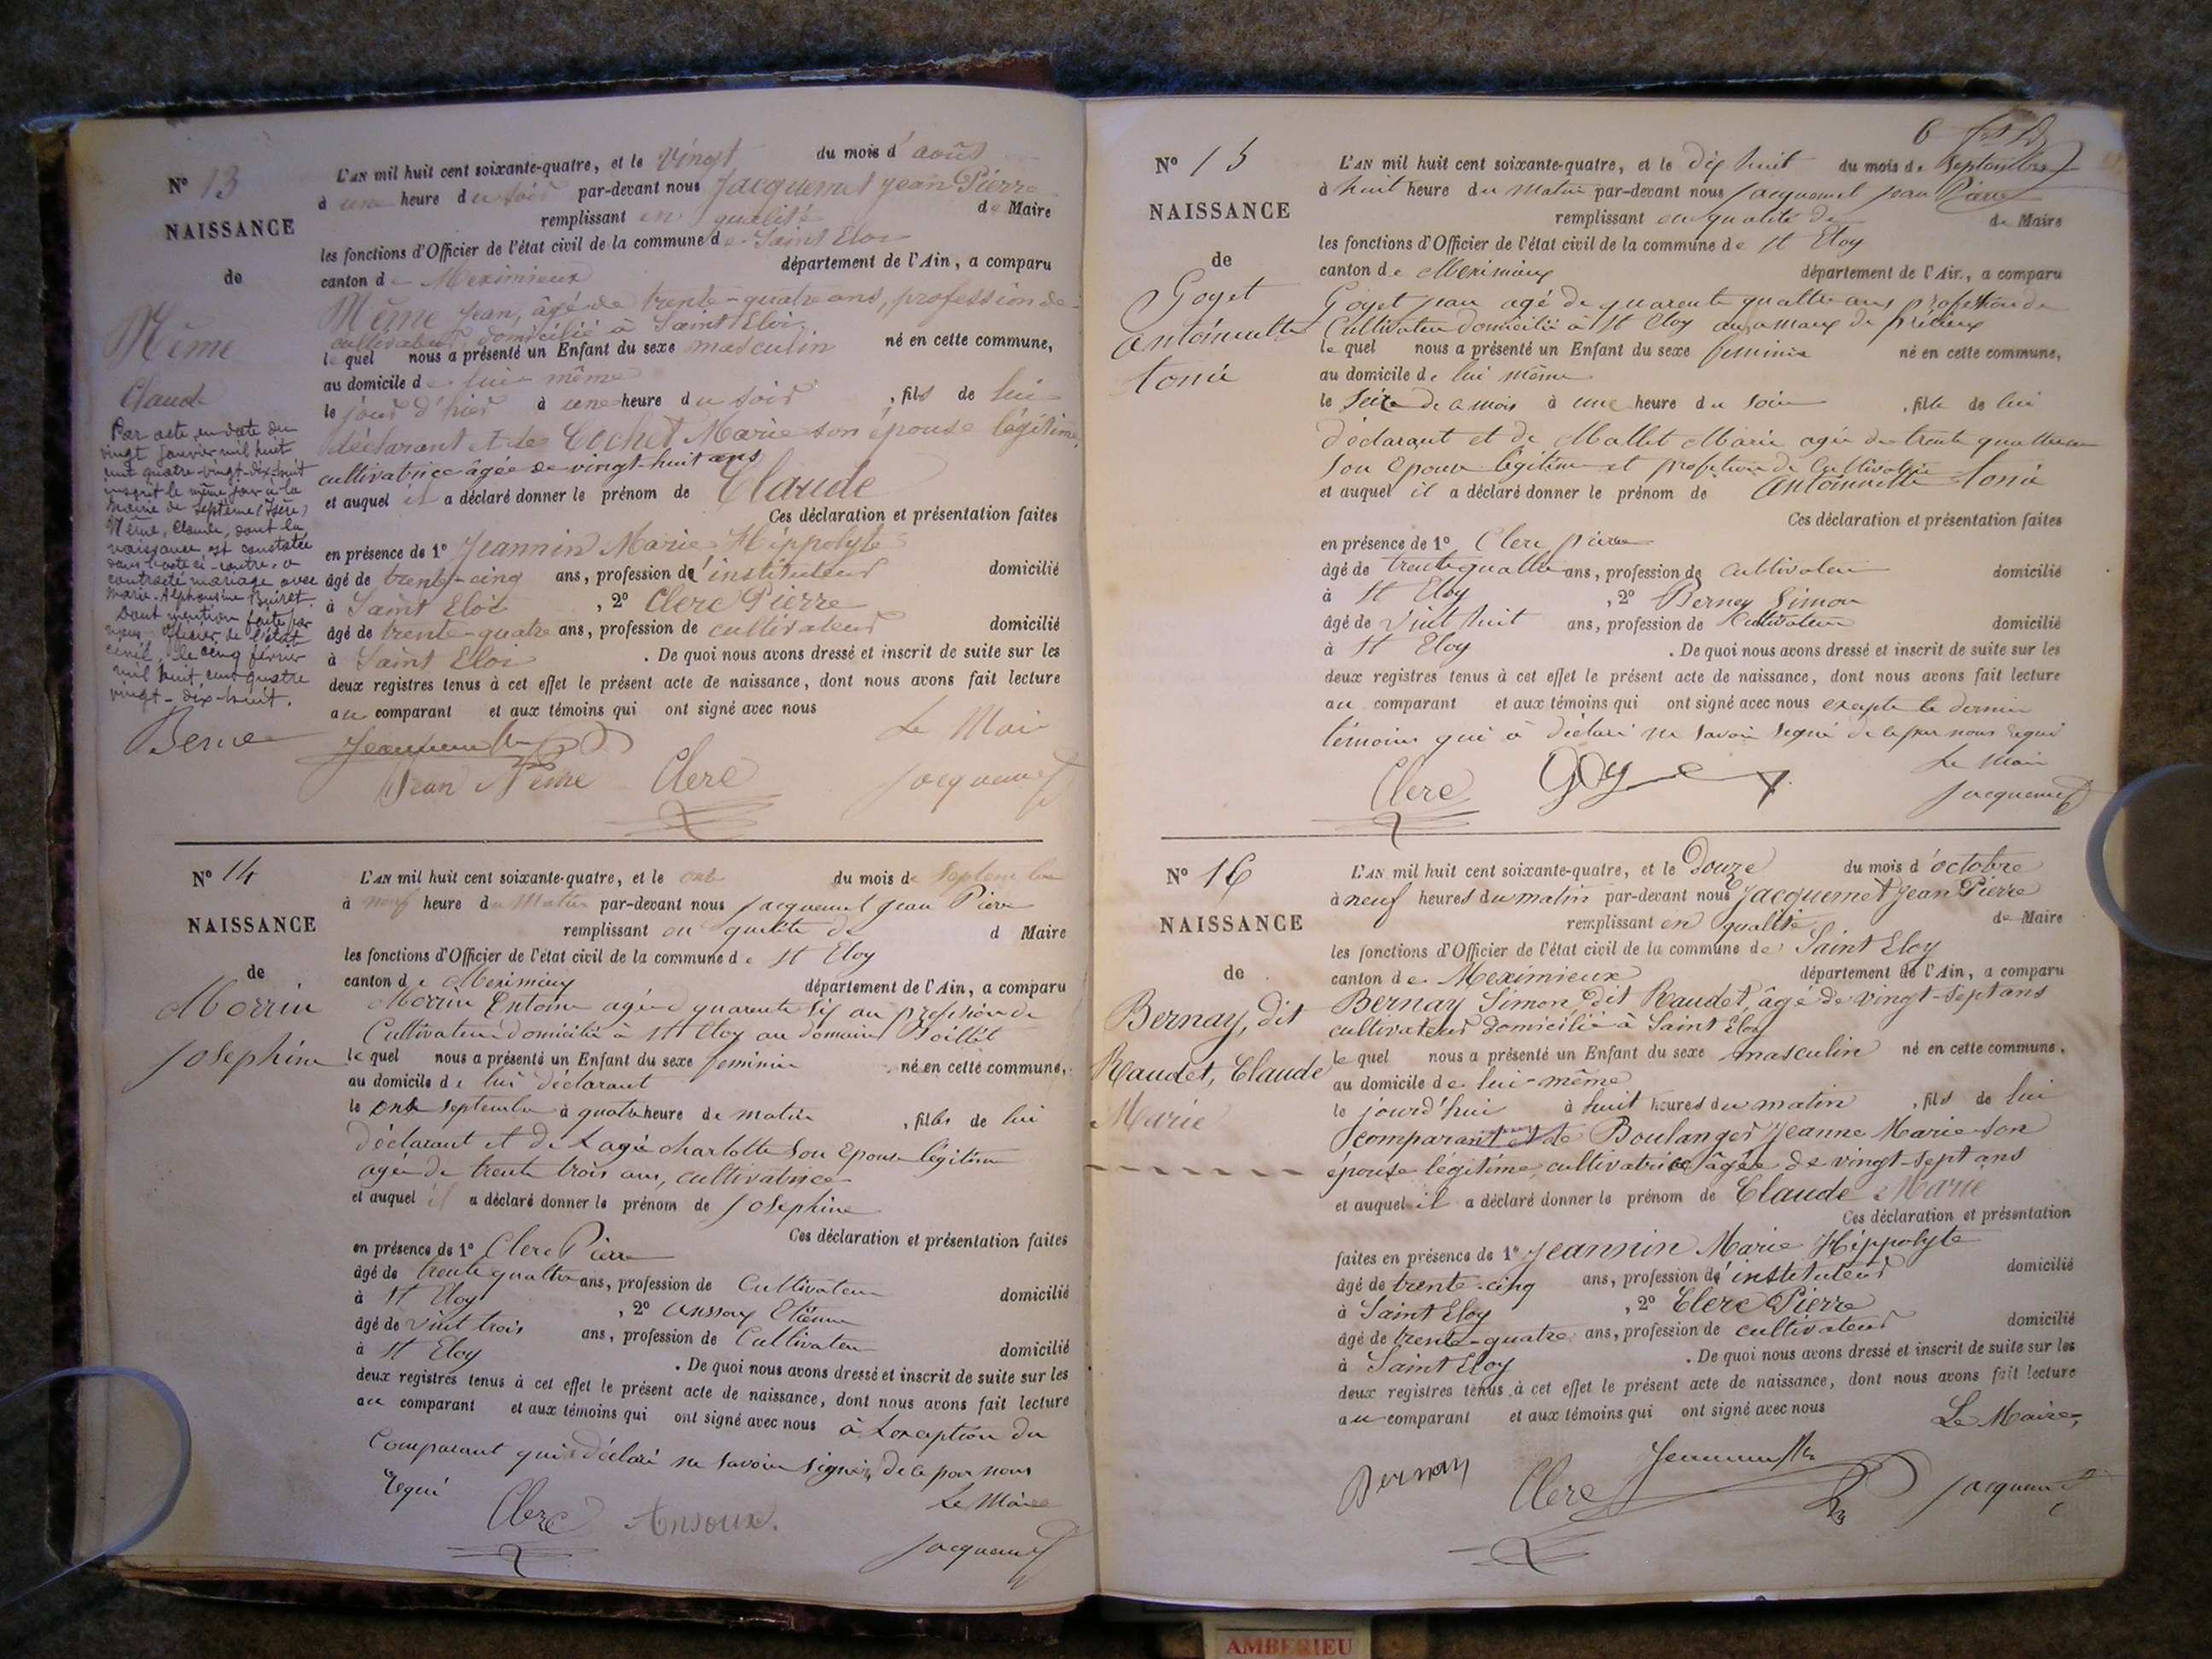 N° 13
NAISSANCE
de
Même
Claude
Par acte en date du
vingt janvier mil huit
cent quatre-vingt-dix-huit
inscrit le même jour à la
mairie de Septème (Isère)
Même, Claude, dont la
naissance est constatée
dans l'acte ci-contre, a
contracté mariage avec
Marie-Alphonsine Buiret.
Dont mention faite par
nous, officier de l'état
civil, le cinq février
mil huit cent quatre
vingt-dix-huit.
Berne
L'AN mil huit cent soixante-quatre, et le vingt du mois d'août
à une heure du soir par-devant nous Jacquemet Jean Pierre
remplissant en qualité de Maire
les fonctions d'Officier de l'état civil de la commune de Saint Eloi
canton de Meximieux département de l'Ain, a comparu
Même Jean, âgé de trente-quatre ans, profession de
cultivateur, domicilié à Saint Eloi,
lequel nous a présenté un Enfant du sexe masculin né en cette commune,
au domicile de lui même
le jour d'hier à une heure du soir, fils de lui
déclarant et de Cochet Marie son épouse légitime,
cultivatrice âgée de vingt-huit ans
et auquel il a déclaré donner le prénom de Claude
Ces déclaration et présentation faites
en présence de 1° Jeannin Marie Hippolyte
âgé de trente-cinq ans, profession d'instituteur domicilié
à Saint Eloi, 2° Clerc Pierre
âgé de trente-quatre ans, profession de cultivateur domicilié
à Saint Eloi. De quoi nous avons dressé et inscrit de suite sur les
deux registres tenus à cet effet le présent acte de naissance, dont nous avons fait lecture
au comparant et aux témoins qui ont signé avec nous
Le Mair
Jean Même Clerc Jacquemet
N° 14
NAISSANCE
de
Morrin
Josephine
L'AN mil huit cent soixante-quatre, et le onze du mois de Septembre
à neuf heure du Matin par-devant nous Jacquemet Jean Pierre
remplissant en qualité de d Maire
les fonctions d'Officier de l'état civil de la commune de St Eloy
canton de Meximieux département de l'Ain, a comparu
Morrin Entoine agé d quarente six an profession de
Cultivateur domicilié à St Eloy au domaine
lequel nous a présenté un Enfant du sexe feminin né en cette commune,
au domicile de lui déclarant
le onze septembre à quatre heure de matin, filles de lui
déclarant et de charlotte son Epouse légitime
agée de trente trois ans, cultivatrice
et auquel il a déclaré donner le prénom de Josephine
Ces déclaration et présentation faites
en présence de 1° Clerc Pierre
âgé de trente quattre ans, profession de Cultivateur domicilié
à St Eloy, 2° Etienne
âgé de vint trois ans, profession de Cultivateur domicilié
à St Eloy. De quoi nous avons dressé et inscrit de suite sur les
deux registres tenus à cet effet le présent acte de naissance, dont nous avons fait lecture
au comparant et aux témoins qui ont signé avec nous à Lexception du
Comparant qui a déclaré ne savoir signer, de ce par nous
requi
Le Maire
Clerc Ansoux. Jacquemet
6
N° 15
NAISSANCE
de
Goyet
antoinette
tonie
L'AN mil huit cent soixante-quatre, et le dix huit du mois de Septembre
à huit heure du matin par-devant nous Jacquemet Jean Pierre
remplissant en qualité de de Maire
les fonctions d'Officier de l'état civil de la commune de St Eloy
canton de Meximieux département de l'Ain, a comparu
Goyet jean agé de quarente quattre ans profession de
Cultivateur domicilié à St Eloy au
lequel nous a présenté un Enfant du sexe feminin né en cette commune,
au domicile de lui même
le seize de ce mois à une heure du soir, fille de lui
déclarant et de Mallet Marie agée de trente quattre an
son epouse légitime et profession de Cultivatrice
et auquel il a déclaré donner le prénom de antoinette tonie
Ces déclaration et présentation faites
en présence de 1° Clerc pierre
âgé de trente quattre ans, profession de cultivateur domicilié
à St Eloy, 2° Bernay Simon
âgé de vint huit ans, profession de Cultivateur domicilié
à St Eloy. De quoi nous avons dressé et inscrit de suite sur les
deux registres tenus à cet effet le présent acte de naissance, dont nous avons fait lecture
au comparant et aux témoins qui ont signé avec nous excepté le dernier
témoin qui a déclaré ne savoir signé de ce par nous requi
Le Mair
Clerc Goyet Jacquemet
N° 16
NAISSANCE
de
Bernay, dit
Raudet, Claude
Marie
L'AN mil huit cent soixante-quatre, et le Douze du mois d'octobre
à neuf heures du matin par-devant nous Jacquemet Jean Pierre
remplissant en qualité de Maire
les fonctions d'Officier de l'état civil de la commune de Saint Eloy
canton de Meximieux département de l'Ain, a comparu
Bernay Simon, dit Raudet, âgé de vingt-sept ans
cultivateur domicilié à Saint Eloy
lequel nous a présenté un Enfant du sexe masculin né en cette commune,
au domicile de lui-même
le jourd'hui à huit heures du matin, fils de lui
comparant et de Boulanger Jeanne Marie son
épouse légitime, cultivatrice âgée de vingt-sept ans
et auquel il a déclaré donner le prénom de Claude Marie
Ces déclaration et présentation
faites en présence de 1° Jeannin Marie Hippolyte
âgé de trente-cinq ans, profession d'instituteur domicilié
à Saint Eloy, 2° Clerc Pierre
âgé de trente-quatre ans, profession de cultivateur domicilié
à Saint Eloy. De quoi nous avons dressé et inscrit de suite sur les
deux registres tenus à cet effet le présent acte de naissance, dont nous avons fait lecture
au comparant et aux témoins qui ont signé avec nous
Le Maire,
Bernay Clerc Jacquemet
AMBERIEU